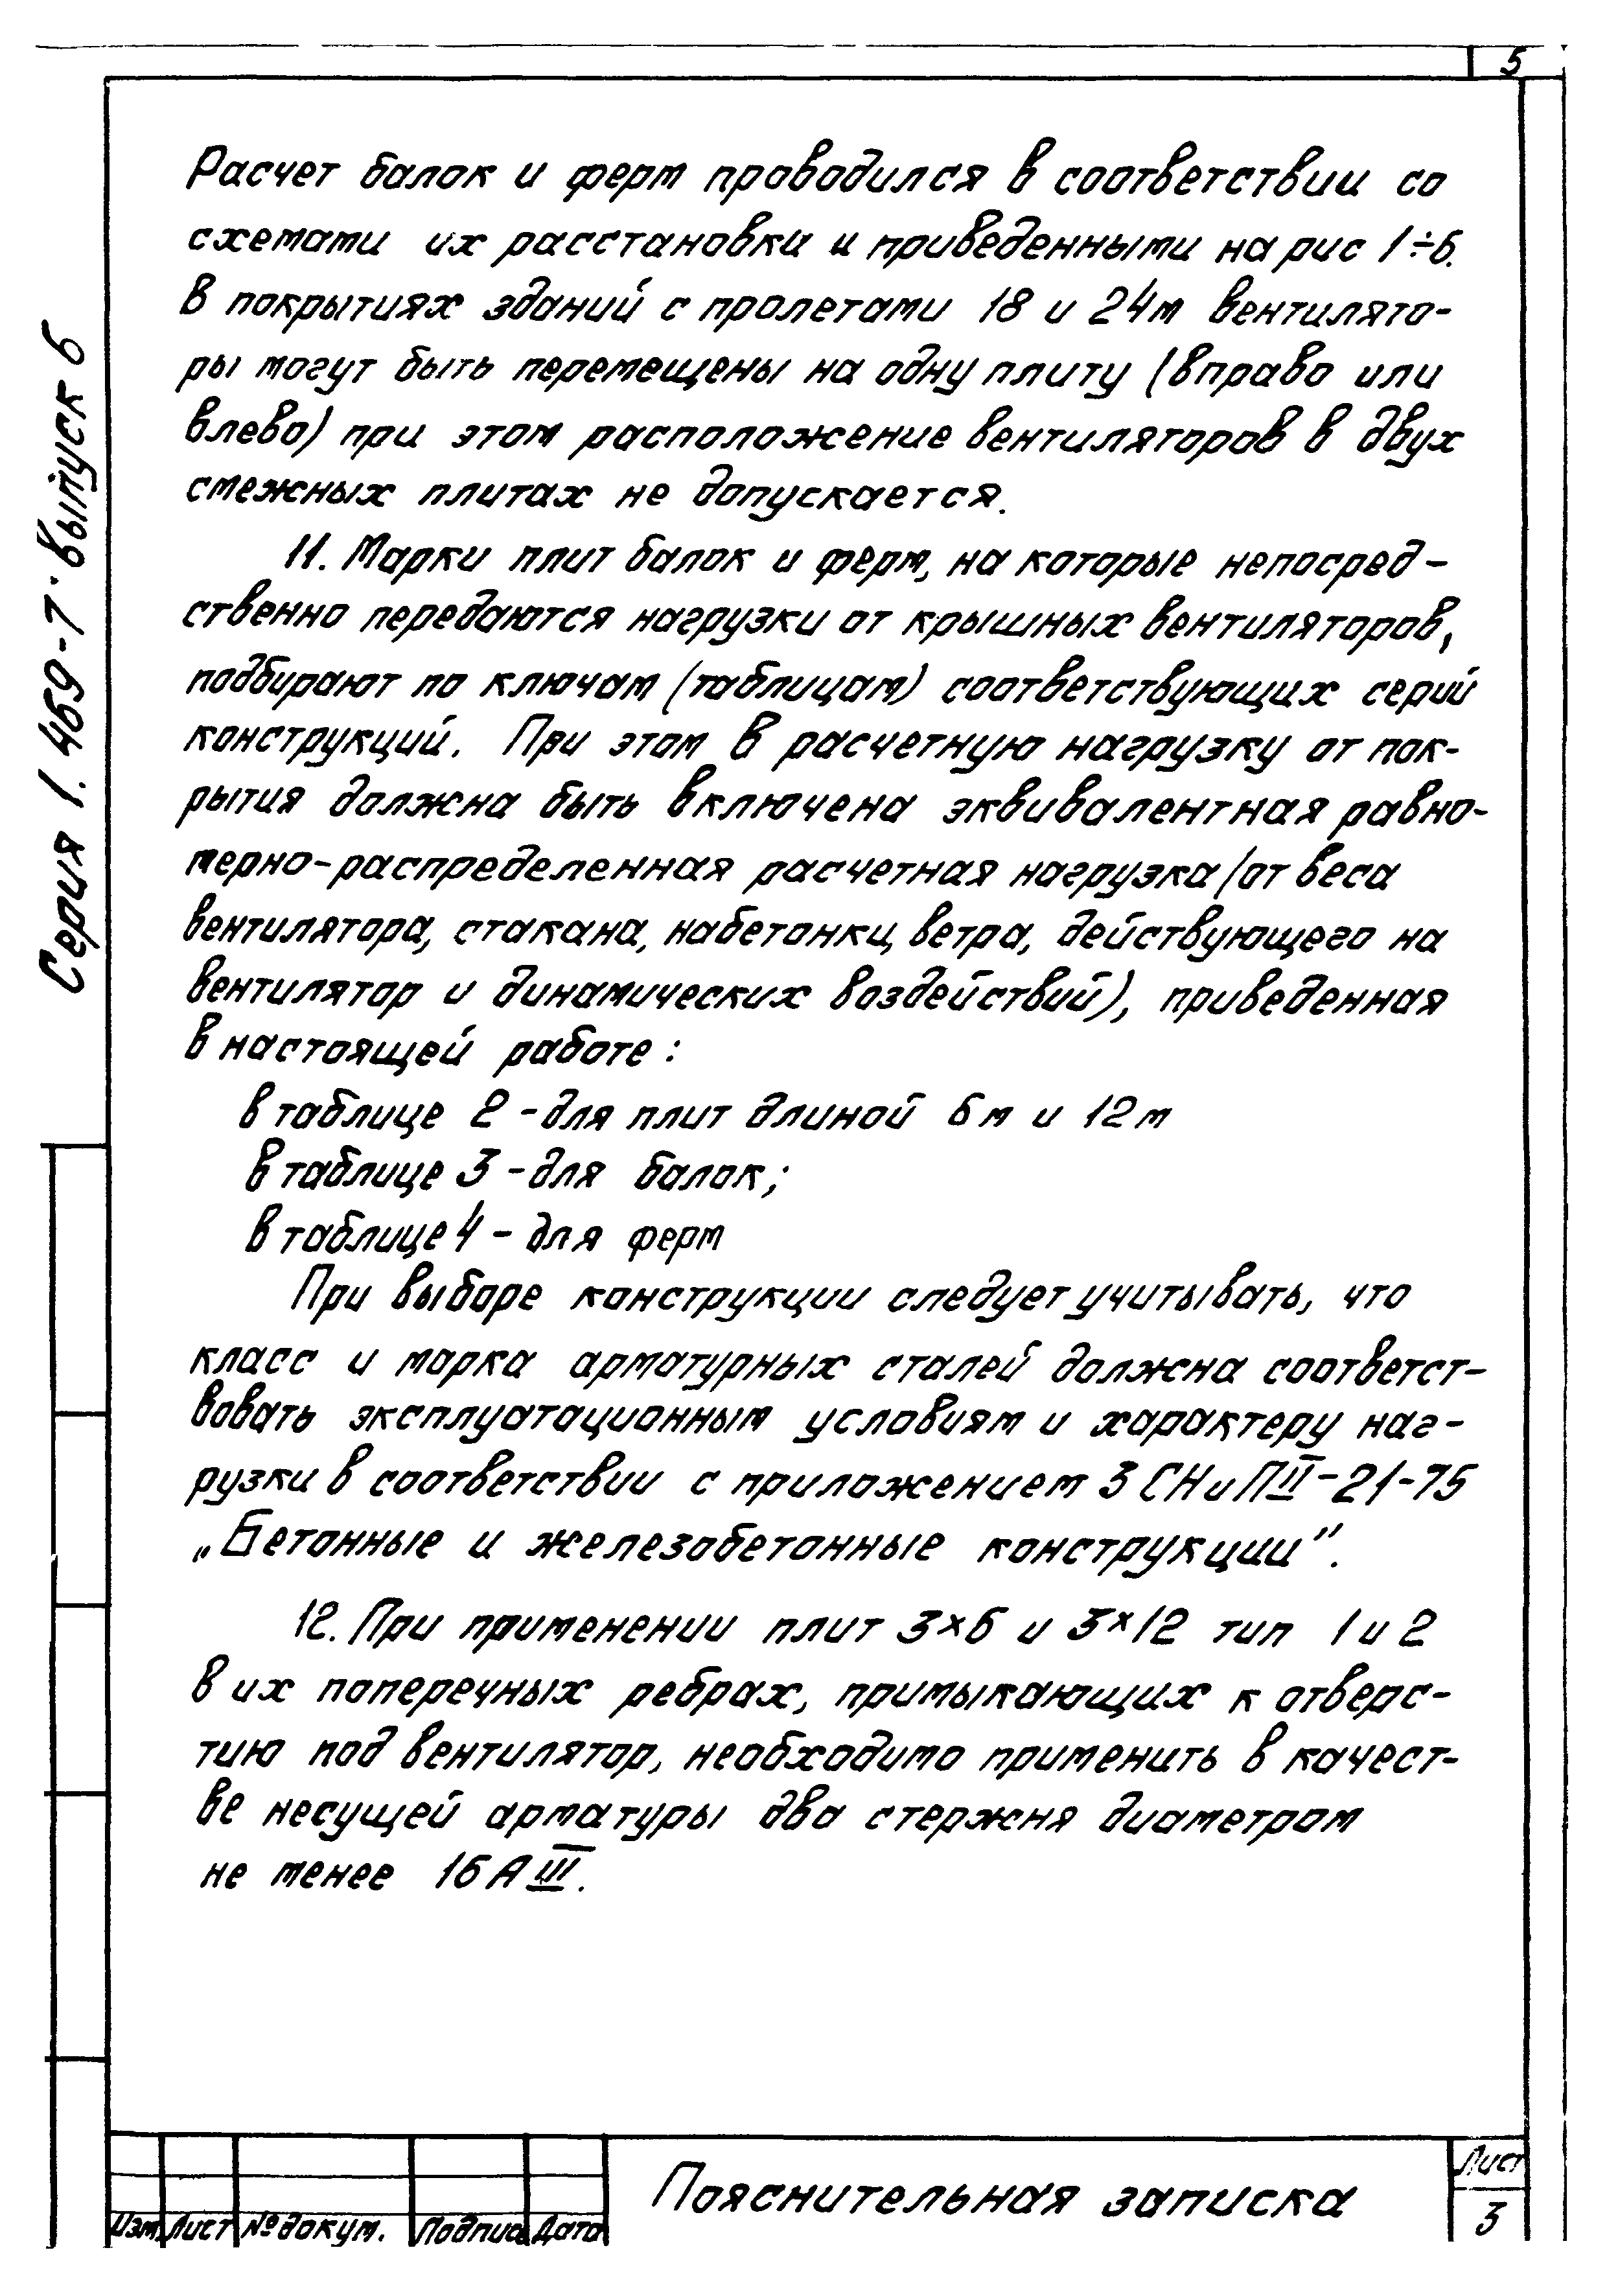 5
Расчет балок и ферм проводился в соответствии со
схемами их расстановки и приведенными на рис 1÷6.
В покрытиях зданий с пролетами 18 и 24м вентилято-
ры могут быть перемещены на одну плиту (вправо или
влево) при этом расположение вентиляторов в двух
смежных плитах не допускается.
11. Марки плит балок и ферм, на которые непосред-
ственно передаются нагрузки от крышных вентиляторов,
подбирают по ключам (таблицам) соответствующих серий
конструкций. При этом в расчетную нагрузку от пок-
рытия должна быть включена эквивалентная равно-
мерно-распределенная расчетная нагрузка (от веса
вентилятора, стакана, набетонки, ветра, действующего на
вентилятор и динамических воздействий), приведенная
в настоящей работе:
в таблице 2 - для плит длиной 6м и 12м
в таблице 3 - для балок;
в таблице 4 - для ферм
При выборе конструкции следует учитывать, что
класс и марка арматурных сталей должна соответст-
вовать эксплуатационным условиям и характеру наг-
рузки в соответствии с приложением 3 СНиП II-21-75
„Бетонные и железобетонные конструкции".
12. При применении плит 3×6 и 3×12 тип 1 и 2
в их поперечных ребрах, примыкающих к отверс-
тию под вентилятор, необходимо применить в качест-
ве несущей арматуры два стержня диаметром
не менее 16 А III.
Серия 1.469-7 Выпуск 6
Изм. Лист № докум. Подпись Дата
Пояснительная записка
Лист
3